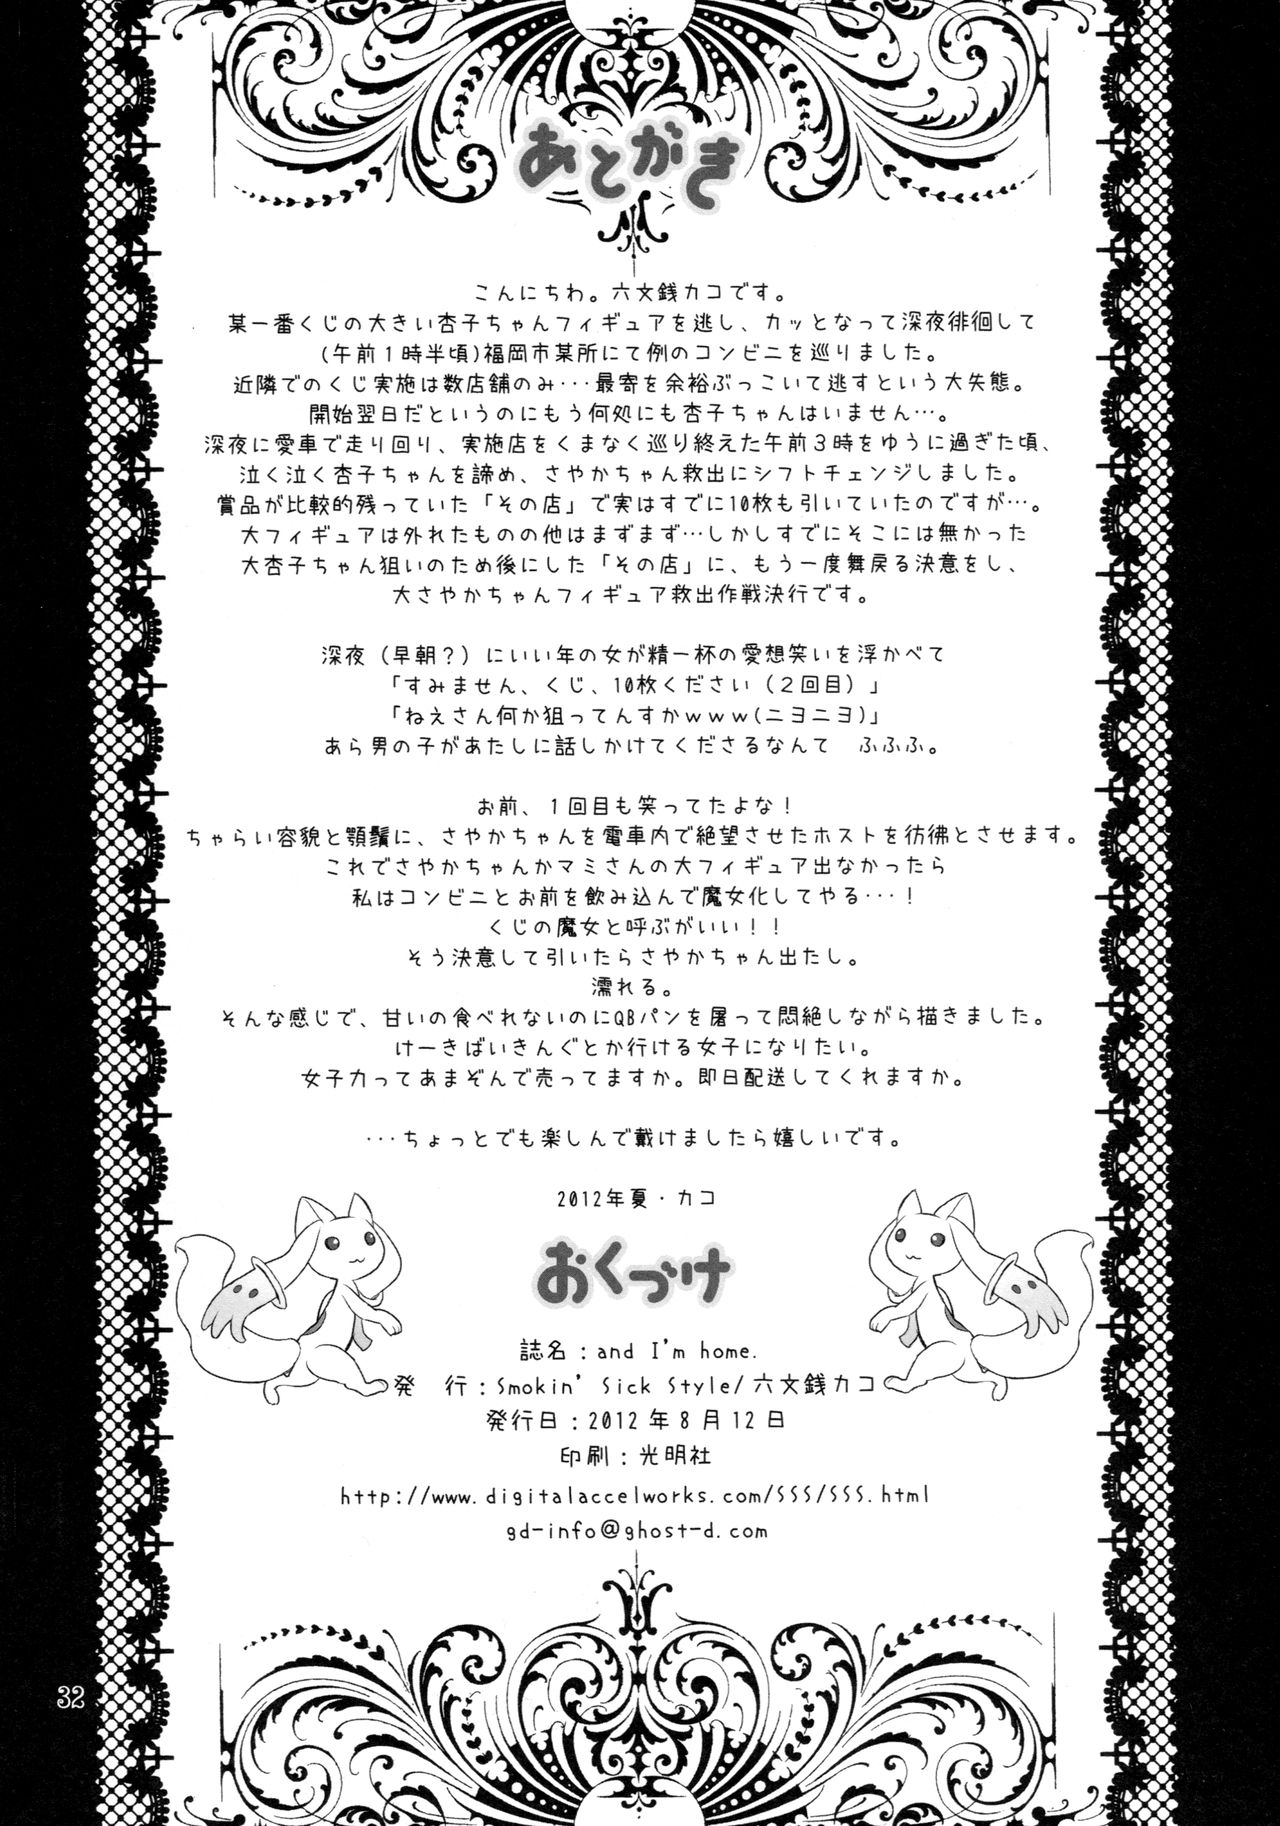 あとがき
こんにちわ。六文銭カコです。
某一番くじの大きい杏子ちゃんフィギュアを逃し、カッとなって深夜徘徊して
(午前１時半頃)福岡市某所にて例のコンビニを巡りました。
近隣でのくじ実施は数店舗のみ･･･最寄を余裕ぶっこいて逃すという大失態。
開始翌日だというのにもう何処にも杏子ちゃんはいません…。
深夜に愛車で走り回り、実施店をくまなく巡り終えた午前３時をゆうに過ぎた頃、
泣く泣く杏子ちゃんを諦め、さやかちゃん救出にシフトチェンジしました。
賞品が比較的残っていた「その店」で実はすでに10枚も引いていたのですが…。
大フィギュアは外れたものの他はまずまず…しかしすでにそこには無かった
大杏子ちゃん狙いのため後にした「その店」に、もう一度舞戻る決意をし、
大さやかちゃんフィギュア救出作戦決行です。
深夜（早朝？）にいい年の女が精一杯の愛想笑いを浮かべて
「すみません、くじ、10枚ください（２回目）」
「ねえさん何か狙ってんすかｗｗｗ(ニヨニヨ)」
あら男の子があたしに話しかけてくださるなんて　ふふふ。
お前、１回目も笑ってたよな！
ちゃらい容貌と顎鬚に、さやかちゃんを電車内で絶望させたホストを彷彿とさせます。
これでさやかちゃんかマミさんの大フィギュア出なかったら
私はコンビニとお前を飲み込んで魔女化してやる･･･！
くじの魔女と呼ぶがいい！！
そう決意して引いたらさやかちゃん出たし。
濡れる。
そんな感じで、甘いの食べれないのにQBパンを屠って悶絶しながら描きました。
けーきばいきんぐとか行ける女子になりたい。
女子力ってあまぞんで売ってますか。即日配送してくれますか。
･･･ちょっとでも楽しんで戴けましたら嬉しいです。
2012年夏・カコ
おくづけ
誌名：and I'm home.
発　行：Smokin' Sick Style/六文銭カコ
発行日：2012年8月12日
印刷：光明社
http://www.digitalaccelworks.com/SSS/SSS.html
gd-info@ghost-d.com
32